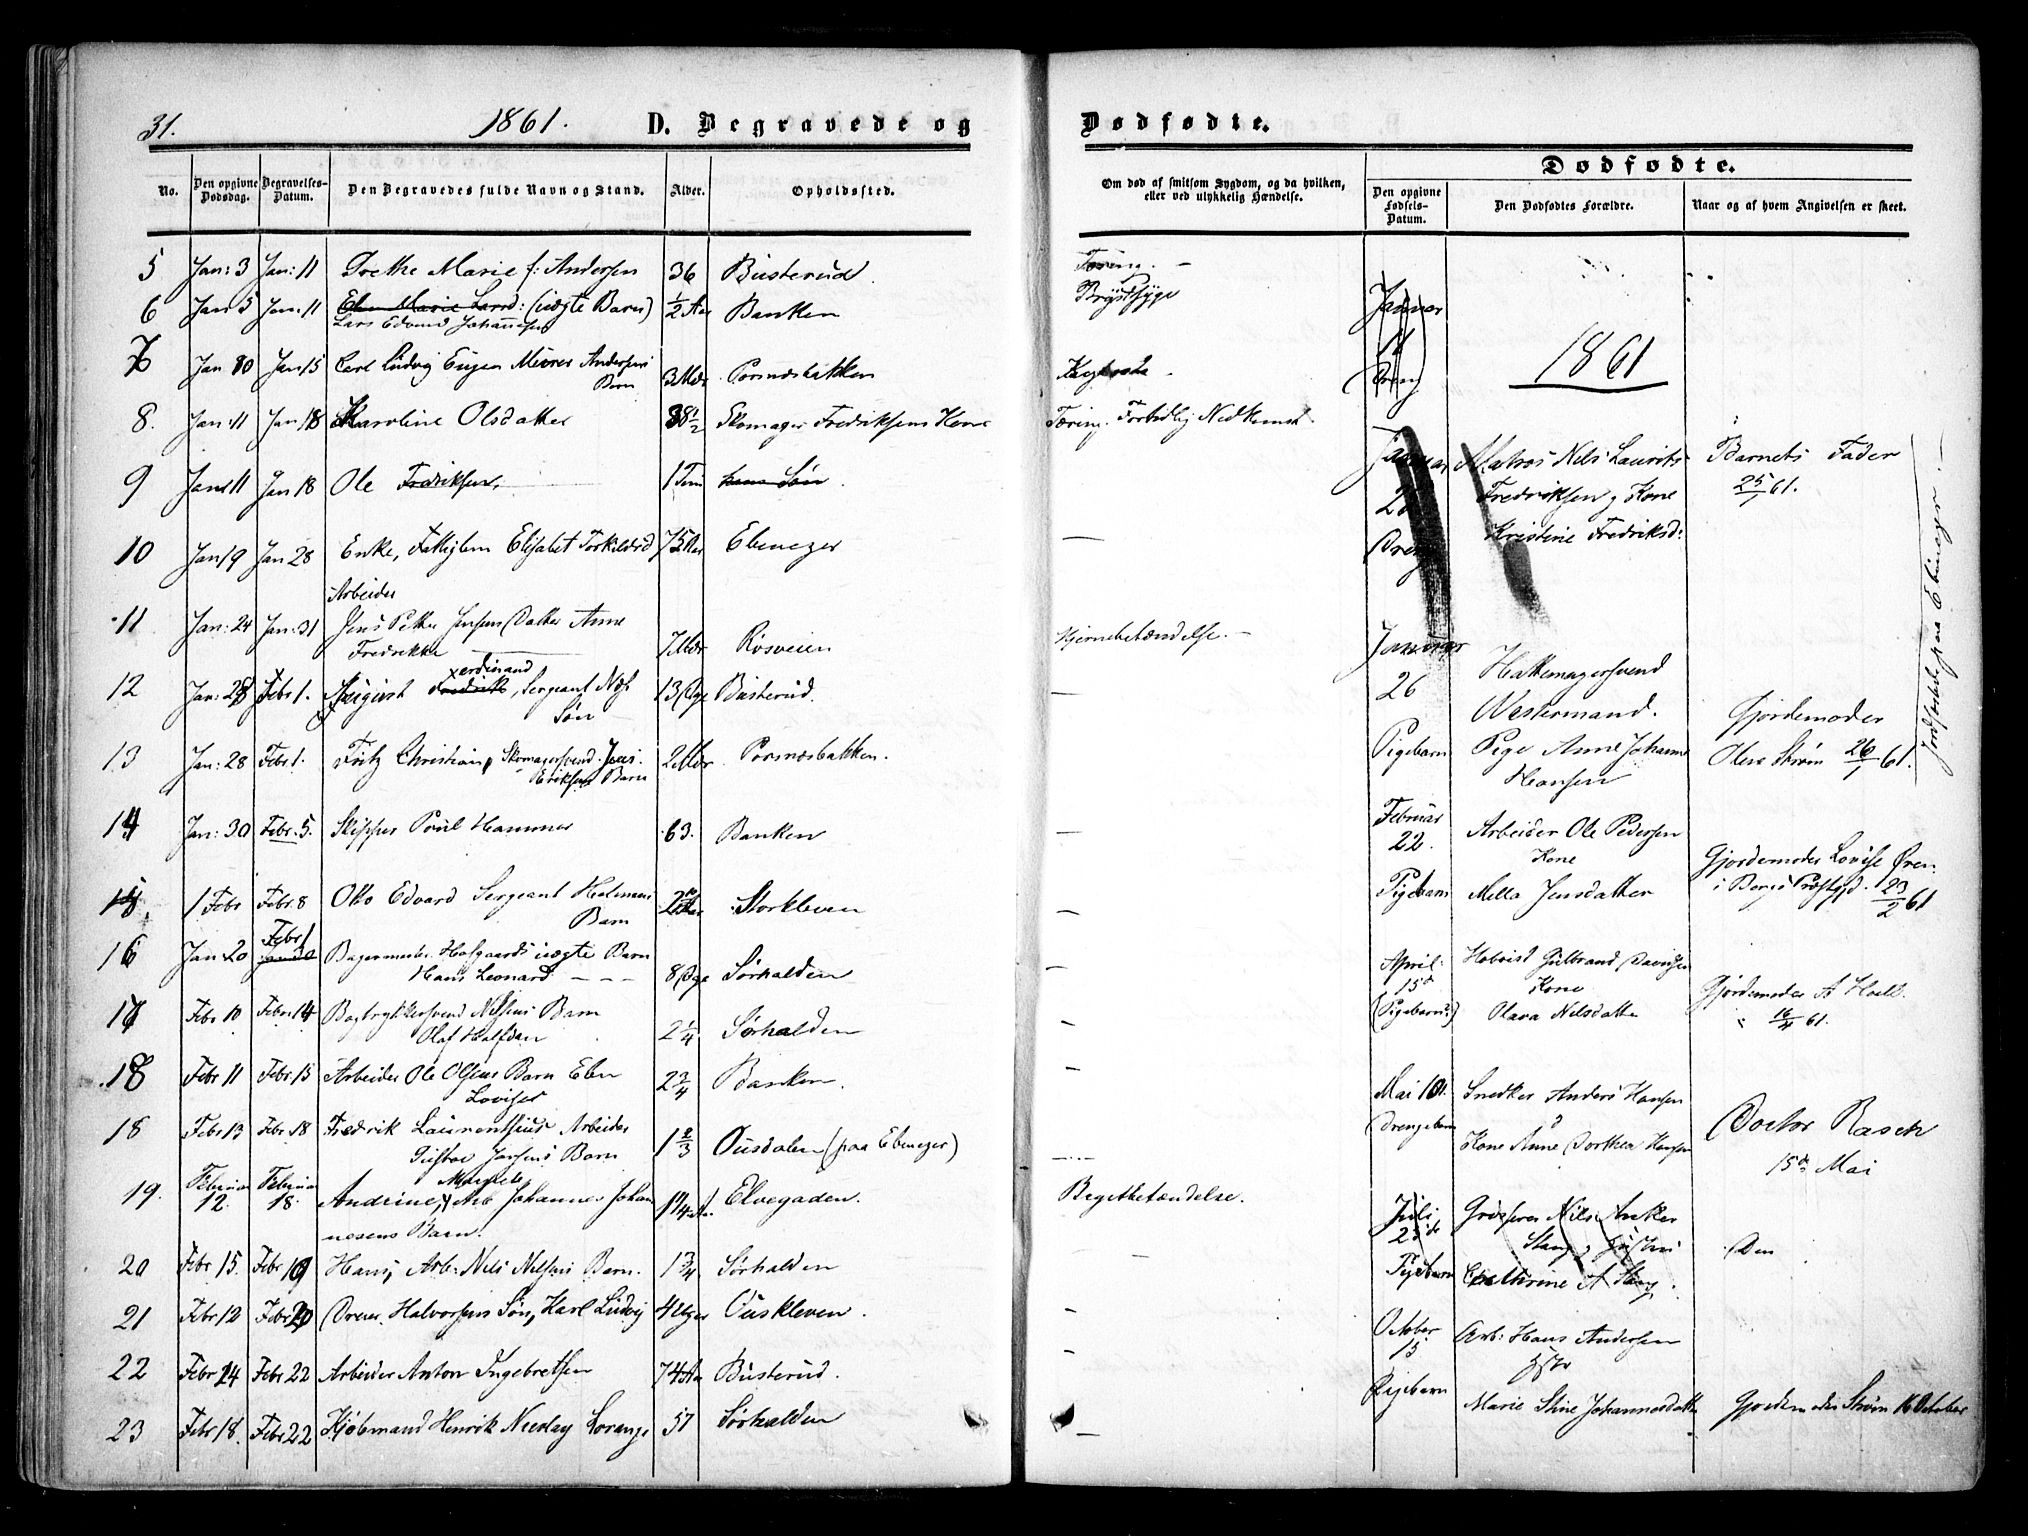 31.
1861.
D. Begravede og
No.
Den opgivne Dødsdag.
Begravelses-Datum.
Den Begravedes fulde Navn og Stand.
Alder.
Opholdssted.
5 Jan: 3 Jan: 11 Marie f: Andersen 36 Busterud.
6 Jan 5 Jan: 11 Marie Larsd: (uægte Barn) 1/2 Aar Banken
Lars Edvard Johannesen
7 Jan 10 Jan 15 Carl Ludvig Eugen Andersens 3 Mdr
Barn
8. Jan: 11 Jan 18 Karoline Olsdatter 38 1/2 Skomager Fredriksens Kone
9 Jan 11 Jan 18 Ole Fredriksen, 1 Time hans Søn.
10 Jan 19 Jan 28 Enke, Fattiglem Elisabet Torkildsd 75 Aar Ebenezer
Arbeider
11 Jan: 24 Jan: 31 Jens Petter Jensens Datter Anne
Fredrikke 7 Mdr Rosveien
erdinand
12 Jan: 28 Febr 1. August Fredrik, Sergeant Næs 13 Dge Busterud.
Søn
13 Jan: 28 Febr 1. Fritz Christian, Skomagersvend Jens 2 Mdr
Eriksens Barn
14 Jan: 30 Febr. 5. Skipper Poul Hammer 63. Banken
15 1 Febr Febr 8 Otto Edvard Sergeant Storkleven
Barn
Febr 1
16 Jan 20 Bagermester Hofgaards uægte Barn
Hans Leonard - - - 8 Dge Sørhalden
17 Febr 10 Febr 14 Bogtrykkersvend Nilsens Barn
Olaf Halfdan 2 1/4 Sørhalden
18 Febr 11 Febr. 15 Arbeider Ole Olsens Barn Elen 2 3/4 Banken.
Lovise
18 Febr 13 Febr 18 Fredrik Laurentsius Arbeider
Gustav Jansens Barn 1 2/3 Ousdalen (paa Ebenezer)
Mathilde
19. Februar 12. Februar 18. Andrine, Arb Johannes Johan Elvegaden.
nesens Barn.
20 Febr 15. Febr 19 Hans, Arb: Nils Nilsens Barn. 1 3/4 Sørhalden
21 Febr 12 Febr 20 Halvorsens Søn, Karl Ludvig 4 Uger Ouskleven.
22 Febr 14 Febr 22 Arbeider Anton Ingebretsen 74 Aar Busterud.
23 Febr 18. Febr 22 Kjøbmand Henrik Nicolay Lorange 57 Sørhalden
Dødfødte.
Om død af smitsom Sygdom, og da hvilken, eller ved ulykkelig Hændelse.
Dødfødte.
Den opgivne Fødsels-Datum.
Den Dødfødtes Forældre.
Naar og af hvem Angivelsen er skeet.
Tæring. -
Brystsyge
Kighoste.
Tæring. Fortidlig Nedkomst.
Hjernebetændelse. -
Brystbetændelse.
Januar
11
Dreng
1861
Januar
Matros Nils Laurits Barnets Fader
Fredriksen og Kone 25/1 61.
Dreng Kristine Fredriksd:
Januar
26 Hattemagersvend
Westermand. Gjordemoder
Pigebarn Pige Anne Johanne Olea Strøm 26/1 61.
Hansen
Jordfæstet paa Ebenezer. -
Februar
22. Arbeider Ole Pedersen
Kone
Pigebarn Mella Jensdatter
Gjordemoder Lovise Øren
i Bergs Præstgjd. 23/2 61
April
15de Gulbrand Davidsen
Kone
(Pigebarn) Olava Nilsdatter
Gjordemoder A Holt.
16/4 61.
Mai 10. Snedker Anders Hansen
Drengebarn Kone Anne Dorthea Hansen
Doctor Rasch
15de Mai
Juli
25de Grosserer Nils Anker
Stang og Hustru Den
Pigebarn Cathrine A Stang.
October
15 Arb: Hans Andersen
Hstr
Pigebarn Marie Stine Johannesdatter Gjordemoder Strøm 16 October